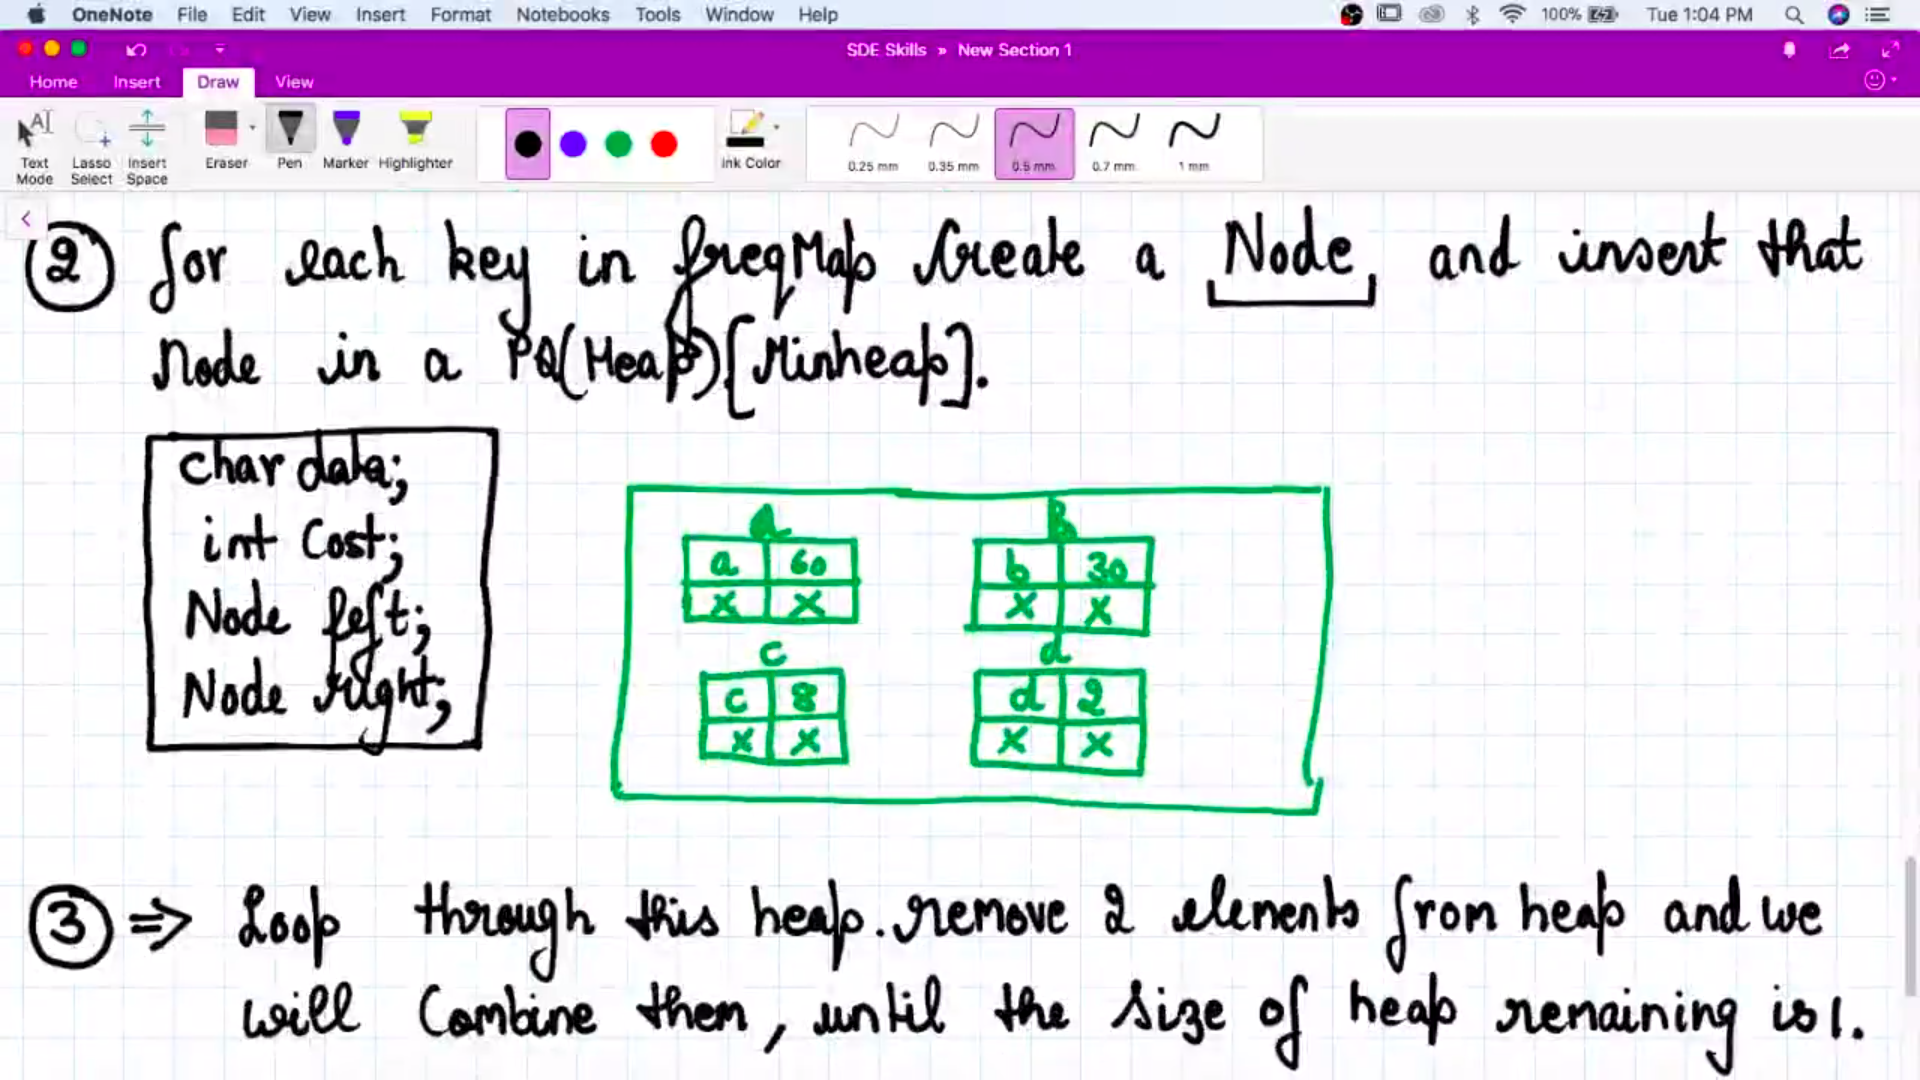 OneNote File Edit View Insert Format Notebooks Tools Window Help 100% Tue 1:04 PM
SDE Skills » New Section 1
Home Insert Draw View
Text Mode Lasso Select Insert Space Eraser Pen Marker Highlighter Ink Color 0.25 mm 0.35 mm 0.5 mm 0.7 mm 1 mm
② for each key in freqMap Create a Node, and insert that
Node in a PQ(Heap)[Minheap].
char data;
int Cost;
Node left;
Node right;
a B
a 60 b 30
x x x x
c d
c 8 d 2
x x x x
③ ⇒ Loop through this heap. remove 2 elements from heap and we
will Combine them, until the size of heap remaining is 1.